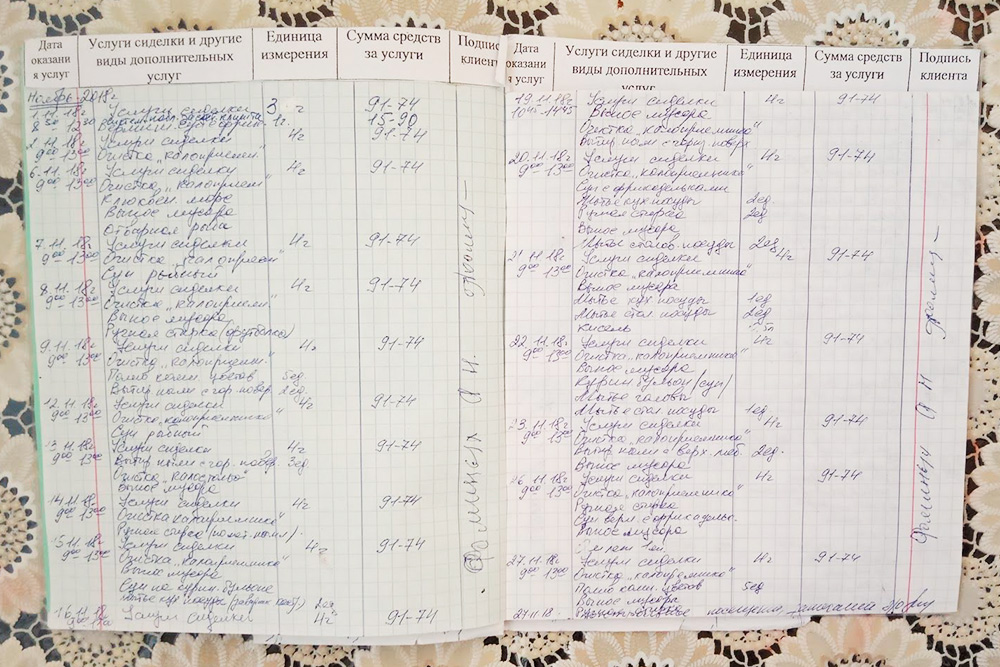 Дата оказани я услуг
Услуги сиделки и другие виды дополнительных услуг
Единица измерения
Сумма средств за услуги
Подпис клиента
Ноябрь 2018г
1.11.18г Услуги сиделки 3 г 91-74
8 30 12 30 15-90
2.11.18г Услуги сиделки 4г 91-74
9 00 13 00 Очистка "калоприемн"
6.11.18г Услуги сиделки 4г 91-74
9 00 13 00 Очистка "калоприемн"
Клюквен. морс
Вынос мусора
Отварная рыба
7.11.18г Услуги сиделки 4г 91-74
9 00 13 00 Очистка "калоприемн"
Суп рыбный
8.11.18г Услуги сиделки 4г 91-74
9 00 13 00 Очистка "калоприемн"
Вынос мусора
Ручная стирка (футболка)
9.11.18г Услуги сиделки 91-74
9 00 13 00 Очистка "калоприемн"
Полив комн цветов 5ед
Вытир пыли с гор. повер. 2ед.
12.11.18г Услуги сиделки 4г 91-74
9 00 13 00 Очистка "калоприемника"
Суп рыбный
13.11.18г Услуги сиделки 4г 91-74
9 00 13 00 Вытир пыли с гор. повер. 3ед
Вынос мусора
14.11.18г Услуги сиделки 4г 91-74
9 00 13 00 Очистка калоприемника
Ручная стирка
15.11.18г Услуги сиделки 4г
9 00 13 00 Очистка "калоприемника
Вынос мусора
Суп на курин. бульоне
Мытье кух посуды 2ед
16.11.18г Услуги сиделки 4г 91-74
Дата оказани я услуг
Услуги сиделки и другие виды дополнительных услуг
Единица измерения
Сумма средств за услуги
Подпись клиента
19.11.18г Услуги сиделки 4г 91-74
10 45 - 14 45 Вынос мусора
Очистка "калоприемника"
Вытир пыли с гориз. поверх
20.11.18г Услуги сиделки 4г 91-74
9 00 13 00 Очистка "калоприемника"
Суп с фрикадельками
Мытье кух посуды 2ед.
Ручная стирка 2ед
Вынос мусора
Мытье столов. посуды 2ед
21.11.18г Услуги сиделки 4г 91-74
9 00 13 00 Очистка "калоприемника"
Вынос мусора
Мытье кух посуды 1ед
Мытье стол посуды 2ед
Кисель
22.11.18г Услуги сиделки 4г 91-74
9 00 13 00 Очистка "калоприемника"
Вынос мусора
Курин бульон (суп)
Мытье головы
Мытье стол посуды 1ед
23.11.18г Услуги сиделки 4г 91-74
9 00 13 00 Очистка "калоприемника"
Вытир пыли с верх. меб. 2ед.
Вынос мусора
26.11.18г Услуги сиделки 4г 91-74
9 00 13 00 Очистка "калоприемника"
Ручная стирка
Суп верм с фрикадельк.
Вынос мусора
27.11.18г Услуги сиделки 4г 91-74
9 00 13 00 Очистка "калоприемника"
Полив комн. цветов 5ед
Вынос мусора
27.11.18.